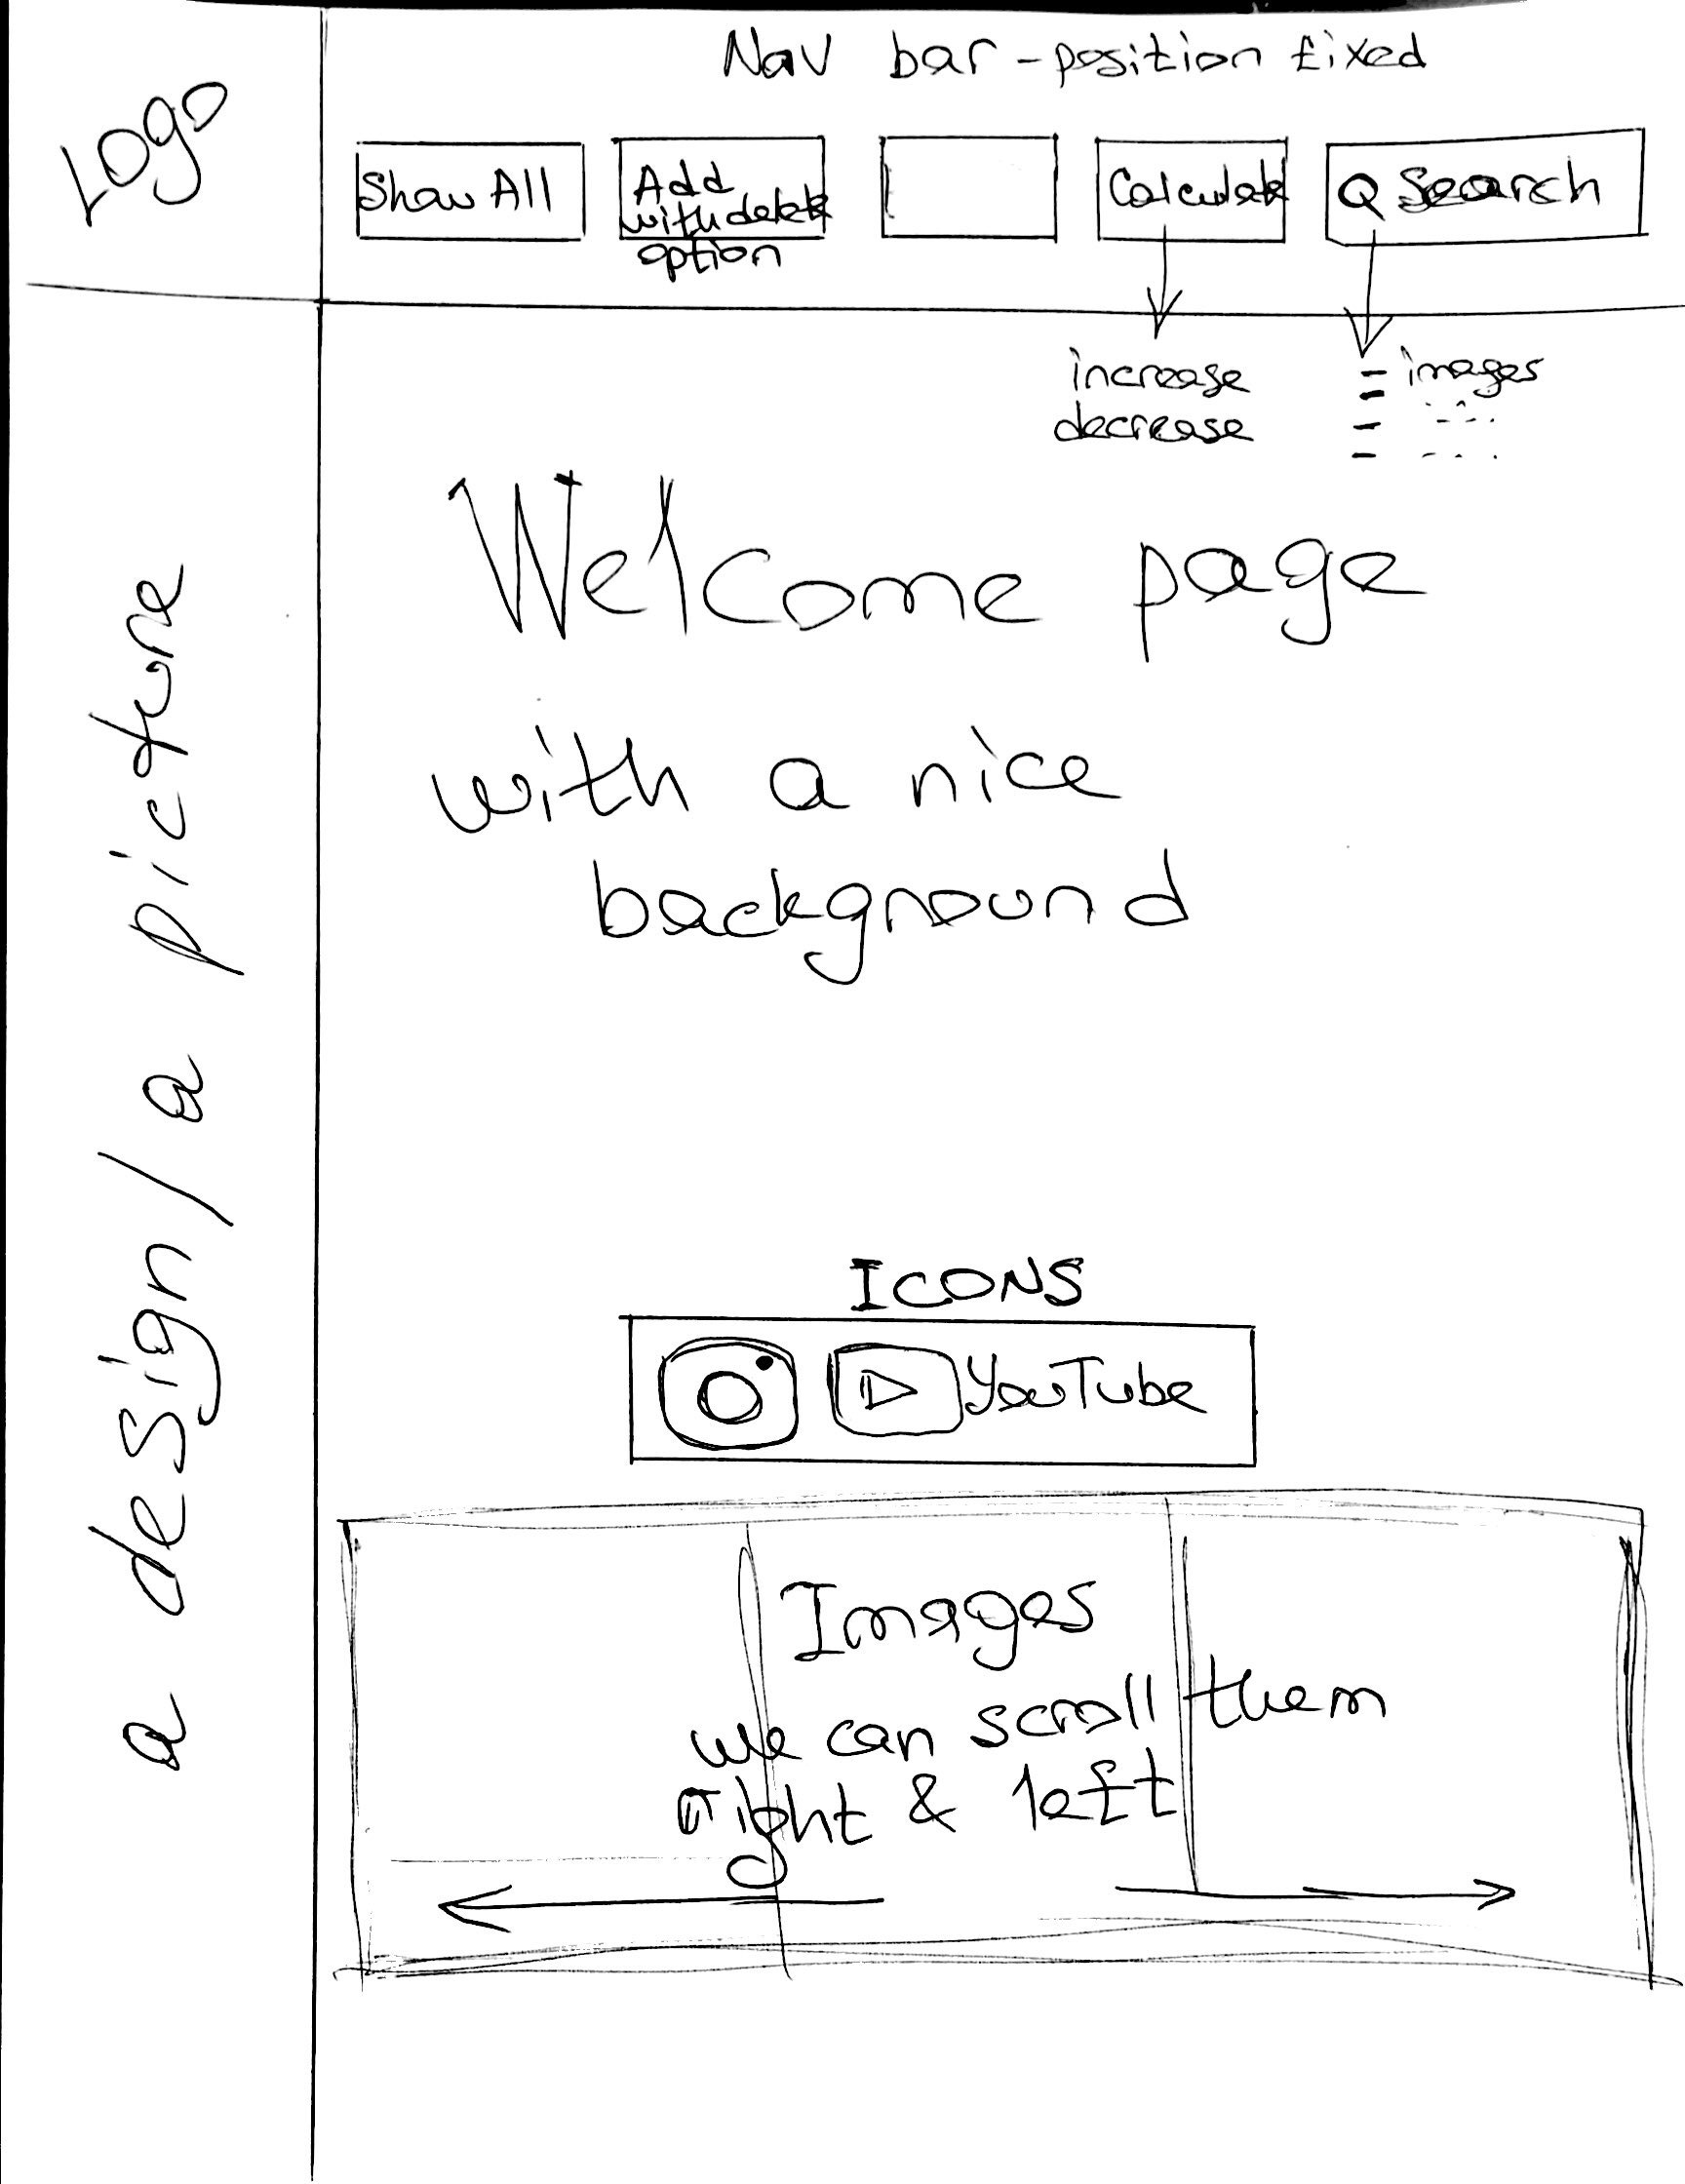 Nav bar - position fixed
Logo
Show All
Add
with delete
option
Calculate
Q Search
increase
decrease
- images
Welcome page
with a nice
background
a design / a picture
ICONS
YouTube
Images
we can scroll them
right & left